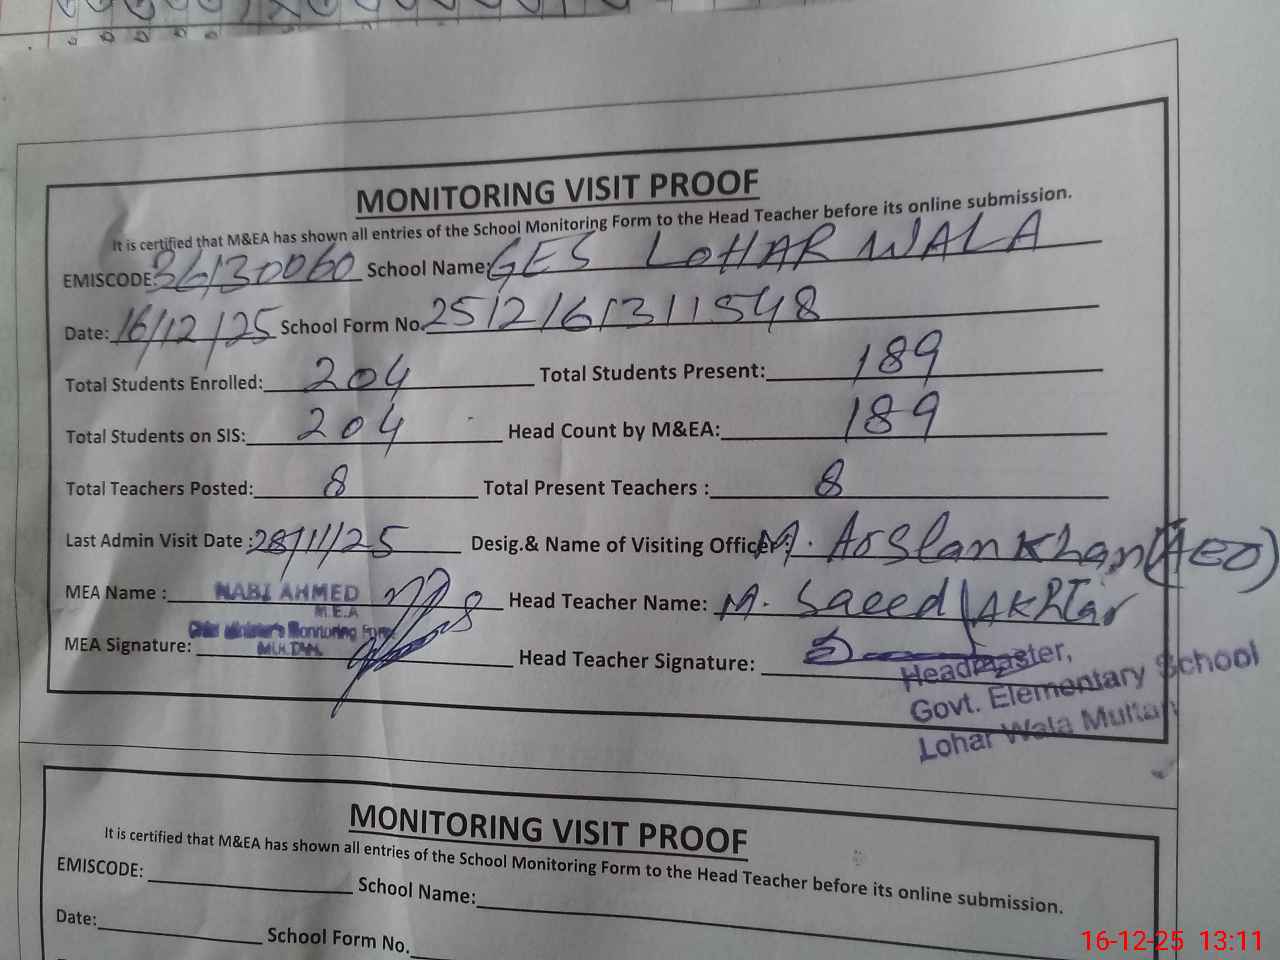 MONITORING VISIT PROOF
It is certified that M&EA has shown all entries of the School Monitoring Form to the Head Teacher before its online submission.
EMISCODE: 36130060 School Name: GES LOHAR WALA
Date: 16/12/25 School Form No. 2512161311548
Total Students Enrolled: 204 Total Students Present: 189
Total Students on SIS: 204 Head Count by M&EA: 189
Total Teachers Posted: 8 Total Present Teachers : 8
Last Admin Visit Date : 28/11/25 Desig.& Name of Visiting Officer : M. Arslan Khan (AEO)
MEA Name : NABI AHMED Head Teacher Name: M. Saeed Akhtar
M.E.A
Chief Minister's Monitoring Force
MULTAN.
MEA Signature: Head Teacher Signature:
Headmaster,
Govt. Elementary School
Lohar Wala Multan
MONITORING VISIT PROOF
It is certified that M&EA has shown all entries of the School Monitoring Form to the Head Teacher before its online submission.
EMISCODE: School Name:
Date: School Form No.
16-12-25 13:11